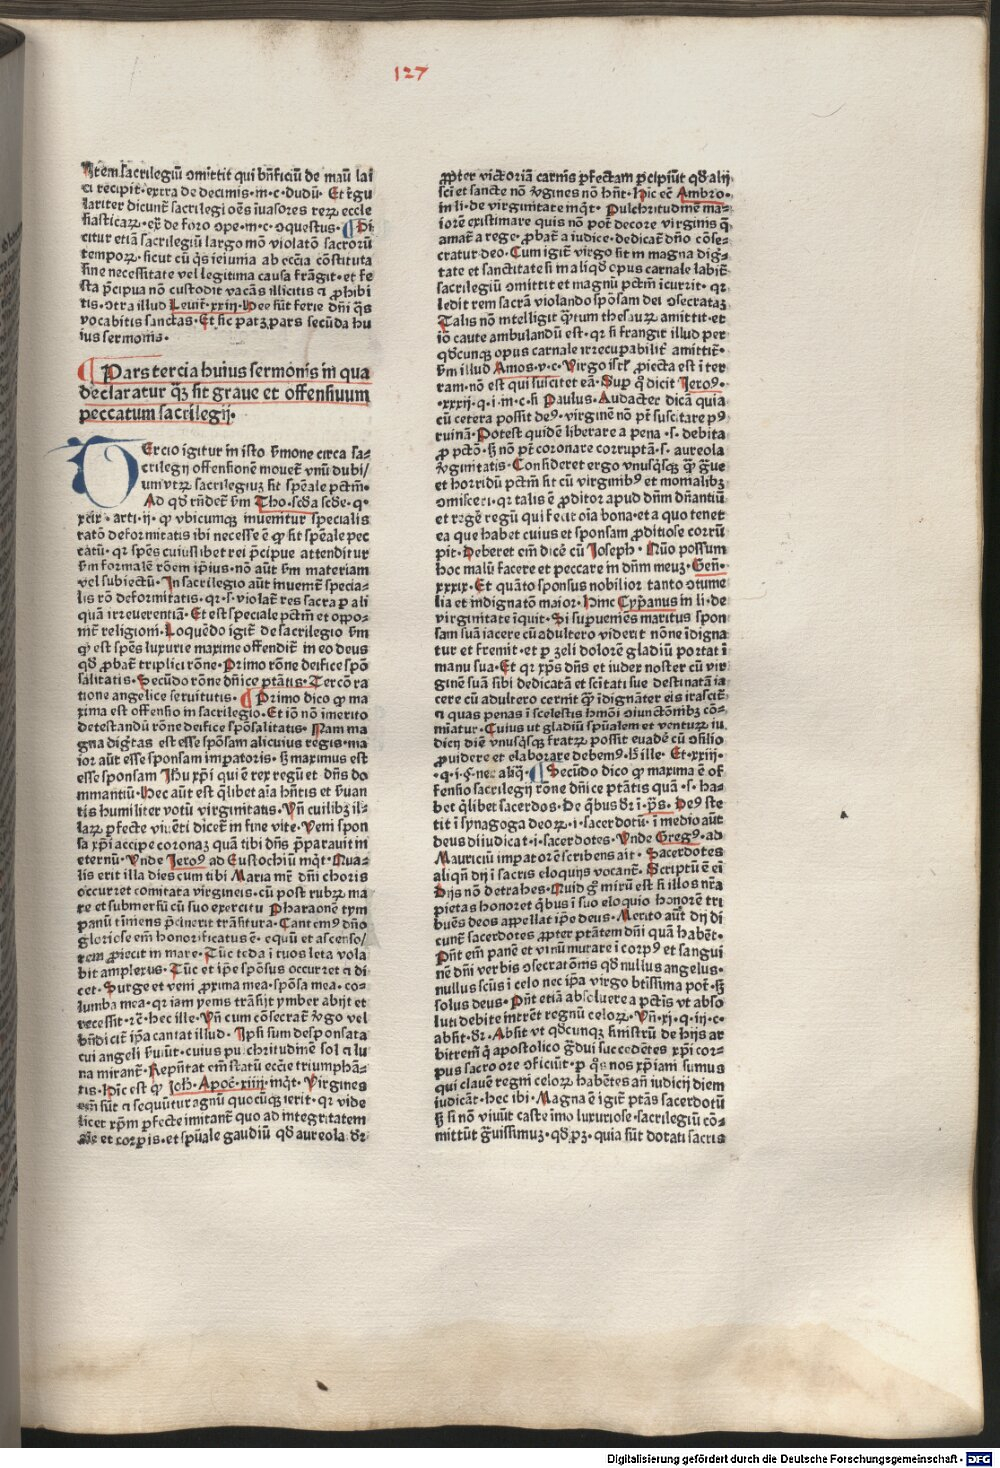 127
Item sacrilegiū ɔmittit qui bn̄ficiū de manu lai
ci recipit· extra de decimis· m̄· c· dudū· Et r̄gu
lariter dicunt̄ sacrilegi oēs īuasores reꝝ eccle
siasticaꝝ· ex̄ de foro ɔpe· m̄· c· ɔquestus· ¶ Di
citur etiā sacrilegiū largo mō violatō sacrorū
tempoꝝ· sicut cū q̄s ieiunia ab ecc̄ia cōstituta
sine necessitate vel legitima causa frāgit· et fe
sta p̄cipua nō custodit vacās illicitis ⁊ ꝓhibi
tis· ɔtra illud Leuit̄· xxiij· Hee sūt ferie dn̄i q̄s
vocabitis sanctas· Et sic patꝫ pars secūda hu
ius sermonis·
¶ Pars tercia huius sermonis in qua
declaratur qꝫ sit graue et offensiuum
peccatum sacrilegij·
TErcio igitur in isto ẜmone circa sa⸗
crilegij offensionē mouet̄ vnū dubi/
um vtꝝ sacrilegiuꝫ sit spēale pctm̄·
Ad qd̄ rn̄det̄ ẜm Tho· scd̄a scd̄e· q·
xcix· arti· ij· ꝙ vbicumqꝫ inuenitur specialis
ratō deformitatis ibi necesse ē ꝙ sit spēale pec
catū· qꝛ spēs cuiuslibet rei p̄cipue attenditur
ẜm formalē rōem ip̄ius· nō aūt ẜm materiam
vel subiectū· In sacrilegio aūt inuenit̄ specia⸗
lis rō deformitatis· qꝛ· s· violat̄ res sacra ꝑ ali
quā irreuerentiā· Et est speciale pctm̄ et oppo⸗
nit̄ religioni· Loquēdo igit̄ de sacrilegio ẜm
ꝙ est spēs luxurie maxime offendit̄ in eo deus
qd̄ ꝓbat̄ triplici rōne· Primo rōne deifice spō
salitatis· Secūdo rōne dn̄ice ptātis· Tercō ra
tione angelice seruitutis· ¶ Primo dico ꝙ ma
xima est offensio in sacrilegio· Et iō nō īmerito
detestandū rōne deifice spōsalitatis· Nam ma
gna dign̄tas est esse spōsam alicuius regis· ma
ior aūt esse sponsam impatoris· sꝫ maximus est
esse sponsam Ihu xp̄i qui ē rex regū et dn̄s do
minantiū· Hec aūt est q̄libet aīa hn̄tis et ẜuan
tis humiliter votū virginitatis· Vn̄ cuilibꝫ il⸗
laꝝ ꝑfecte viuēti dicet̄ in fine vite· Veni spon
sa xp̄i accipe coronaꝫ quā tibi dn̄s p̄parauit in
eternū· Vnde Jeroꝰ ad Eustochiū inq̄t· Qua⸗
lis erit illa dies cum tibi Maria mr̄ dn̄i choris
occurret comitata virgineis· cū post rubꝝ ma
re et submersū cū suo exercitu Pharaonē tym
panū tinnens p̄cinerit trāsitura· Cantemꝰ dn̄o
gloriose em̄ honorificatus ē· equū et ascenso/
rem ꝓiecit in mare· Tūc teda ī tuos leta vola
bit amplexus· Tūc et ip̄e spōsus occurret ⁊ di
cet· Surge et veni ꝓxima mea· spōsa mea· co⸗
lumba mea· qꝛ iam yems trāsijt ymber abijt et
recessit· rē· hec ille· Vn̄ cum cōsecrat̄ v̄go vel
bn̄dicit̄ ip̄a cantat illud· Ipsi sum desponsata
cui angeli ẜuiūt· cuius pulchritudinē sol ⁊ lu
na mirant̄· Repn̄tat em̄ statū ecc̄ie triumphā⸗
tis· Hic est ꝙ Joh· Apoc̄· xiiij· inq̄t· Virgines
em̄ sūt ⁊ sequūtur agnū quocūqꝫ ierit· qꝛ vide
licet xp̄m ꝑfecte imitant̄ quo ad integritatem
et corꝑis· et spūale gaudiū qd̄ aureola dr̄
ꝓpter victoriā carnis ꝑfectam ꝑcipiūt qd̄ alij
sci et sancte nō v̄gines nō hn̄t· Hic ec̄ Ambro·
in li· de virginitate inq̄t· Pulchritudinē ma⸗
iorē existimare quis nō pōt decore virginis q̄
amat̄ a rege· ꝓbat̄ a iudice· dedicat̄ dn̄o cōse⸗
cratur deo· Cum igit̄ virgo sit in magna dig⸗
tate et sanctitate si in aliqd̄ opus carnale labit̄
sacrilegiū ɔmittit et magnū pctm̄ īcurrit· qꝛ
ledit rem sacrā violando spōsam dei ɔsecrataꝫ
Talis nō intelligit q̄ntum thesauꝝ amittit· et
iō caute ambulandū est· qꝛ si frangit illud per
qd̄cunqꝫ opus carnale irrecupabilit̄ amittit̄·
ẜm illud Amos· v· c· Virgo isrl̄ ꝓiecta est ī ter
ram· nō est qui suscitet eā· Suꝑ q̄ dicit Jeroꝰ·
·xxxij· q· i· m̄· c· si Paulus· Audacter dicā quia
cū cetera possit deꝰ· virginē nō pt̄ suscitare pꝰ
ruinā· Potest quidē liberare a pena· s· debita
ꝓ pctō· sꝫ nō pt̄ coronare corruptā· s· aureola
v̄ginitatis· Consideret ergo vnusq̄sqꝫ ꝙ g̈ue
et horridū pctm̄ sit cū virginibꝰ et monialibꝫ
ɔmisceri· qꝛ talis ē ꝓditor apud dn̄m dn̄antiū
et regē regū qui fecit oīa bona· et a quo tenet
ea que habet cuius et sponsam ꝓditiose corrū
pit· Deberet em̄ dicē cū Joseph· Nūo possum
hoc malū facere et peccare in dn̄m meuꝫ· Gen̄·
xxxix· Et quāto sponsus nobilior tanto ɔtume
lia et indignatō maior· Hinc Cyp̄anus in li· de
virginitate īquit· Si supueniēs maritus spon
sam suā iacere cū adultero viderit nōne īdigna
tur et fremit· et ꝑ zeli dolorē gladiū portat ī
manu sua· Et qꝛ xp̄s dn̄s et iudex noster cū vir
ginē suā sibi dedicatā et scitati sue destinatā ia
cere cū adultero cernit ꝙ īdignāter eis irascit̄
⁊ quas penas ī scelestis hmōi ɔiunctōnibꝫ cō⸗
miatur· Cuius vt gladiū spūalem et ventuꝝ iu
dicij diē vnusq̄sqꝫ fratꝝ possit euadē cū ɔsilio
ꝓuidere et elaborare debemꝰ· H̄ ille· Et· xxiij·
·q· i· §· nec aliq̄· ¶ Secūdo dico ꝙ maxima ē of
fensio sacrilegij rōne dn̄ice ptātis quā· s· ha⸗
bet q̄libet sacerdos· De q̄bus dr̄ ī· p̄s· Deꝰ ste
tit ī synagoga deoꝝ· i· sacerdotū· ī medio aūt
deus diiudicat· i· sacerdotes· Vnde Gregꝰ· ad
Mauriciū impatorē scribens ait· Sacerdotes
aliqn̄ dij ī sacris eloquijs vocant̄· Scriptū ē ei
Dijs nō detrahes· Quid g̊ mirū est si illos nr̄a
pietas honoret q̄bus ī suo eloquio honorē tri
buēs deos appellat ip̄e deus· Merito aūt dij di
cunt̄ sacerdotes ꝓpter ptātem dn̄i quā habēt·
Pn̄t em̄ panē et vinū mutare ī corpꝰ et sangui
nē dn̄i verbis ɔsecratōnis qd̄ nullus angelus·
nullus scūs ī celo nec ip̄a virgo btīssima pōt· sꝫ
solus deus· Pn̄t etiā absoluere a pctīs vt abso
luti debite intrēt regnū celoꝝ· Vn̄· xj· q· iij· c·
absit· dr̄· Absit vt qd̄cunqꝫ sinistrū de hijs ar
bitrem̄ q̄ apostolico g̈dui succedētes xp̄i cor⸗
pus sacro ore ɔficiūt· ꝑ q̄s nos xp̄iani sumus
qui clauē regni celoꝝ habētes an̄ iudicij diem
iudicāt· hec ibi· Magna ē igit̄ ptās sacerdotū
sꝫ si nō viuūt caste imo luxuriose· sacrilegiū cō⸗
mittūt g̈uissimuꝫ· qd̄ pꝫ· quia sūt dotati sacris
Digitalisierung gefördert durch die Deutsche Forschungsgemeinschaft - DFG